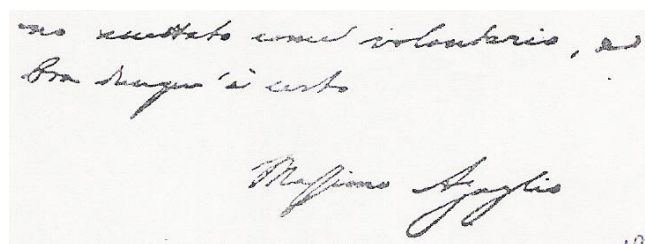 no accettato come volontario, e
Bra dunque è certo
Massimo Azeglio